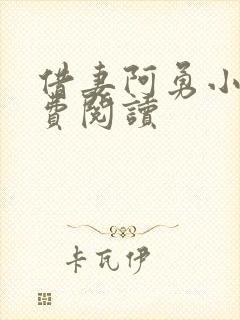 借妻阿勇小
費閱讀
卡瓦伊